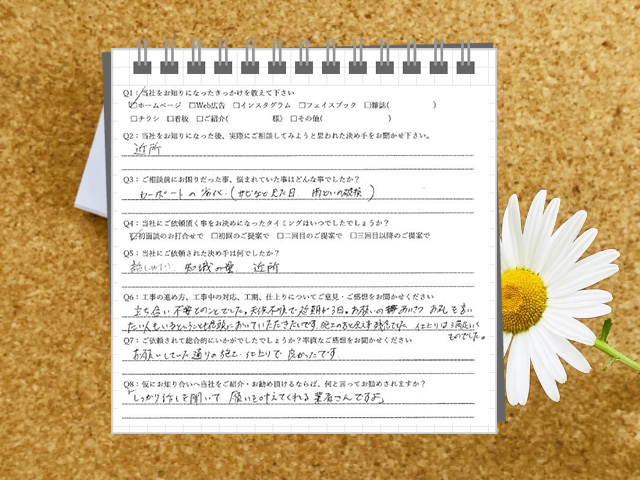 Q1：当社をお知りになったきっかけを教えて下さい
☑ホームページ □Web広告 □インスタグラム □フェイスブック □雑誌( )
□チラシ □看板 □ご紹介( 様) □その他( )
Q2：当社をお知りになった後、実際にご相談してみようと思われた決め手をお聞かせ下さい。
近所
Q3：ご相談前にお困りだった事、悩まれていた事はどんな事でしたか？
カーポートの劣化（サビなど見た目 雨といの破損）
Q4：当社にご依頼頂く事をお決めになったタイミングはいつでしたでしょうか？
☑初面談のお打合せで □初回のご提案で □二回目のご提案で □三回目以降のご提案で
Q5：当社にご依頼された決め手は何でしたか？
話しやすい 知識の量 近所
Q6：工事の進め方、工事中の対応、工期、仕上りについてご意見・ご感想をお聞かせください
立ち合い不要とのことでした。天候不順で 3日。お願いの あいさつ お礼を言い
たい人もいるということも においていただきたいです。 仕上りは満足いく
ものでした。
Q7：ご依頼されて総合的にいかがでしたでしょうか？率直なご感想をお聞かせください
お願いしていた通りの施工、仕上りで良かったです。
Q8：仮にお知り合いへ当社をご紹介・お勧め頂けるならば、何と言ってお勧めされますか？
「しっかり話しを聞いて 願いを叶えてくれる業者さんですよ」